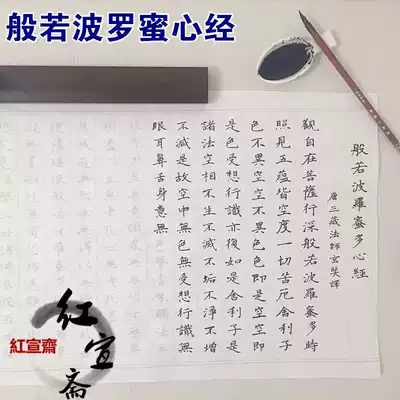 般若波罗蜜心经
般若波羅蜜多心經
唐三藏法師玄奘譯
觀自在菩薩行深般若波羅蜜多時
照見五蘊皆空度一切苦厄舍利子
色不異空空不異色色即是空空即
是色受想行識亦復如是舍利子是
諸法空相不生不滅不垢不淨不增
不減是故空中無色無受想行識無
眼耳鼻舌身意無
紅宣齋
红宣斋